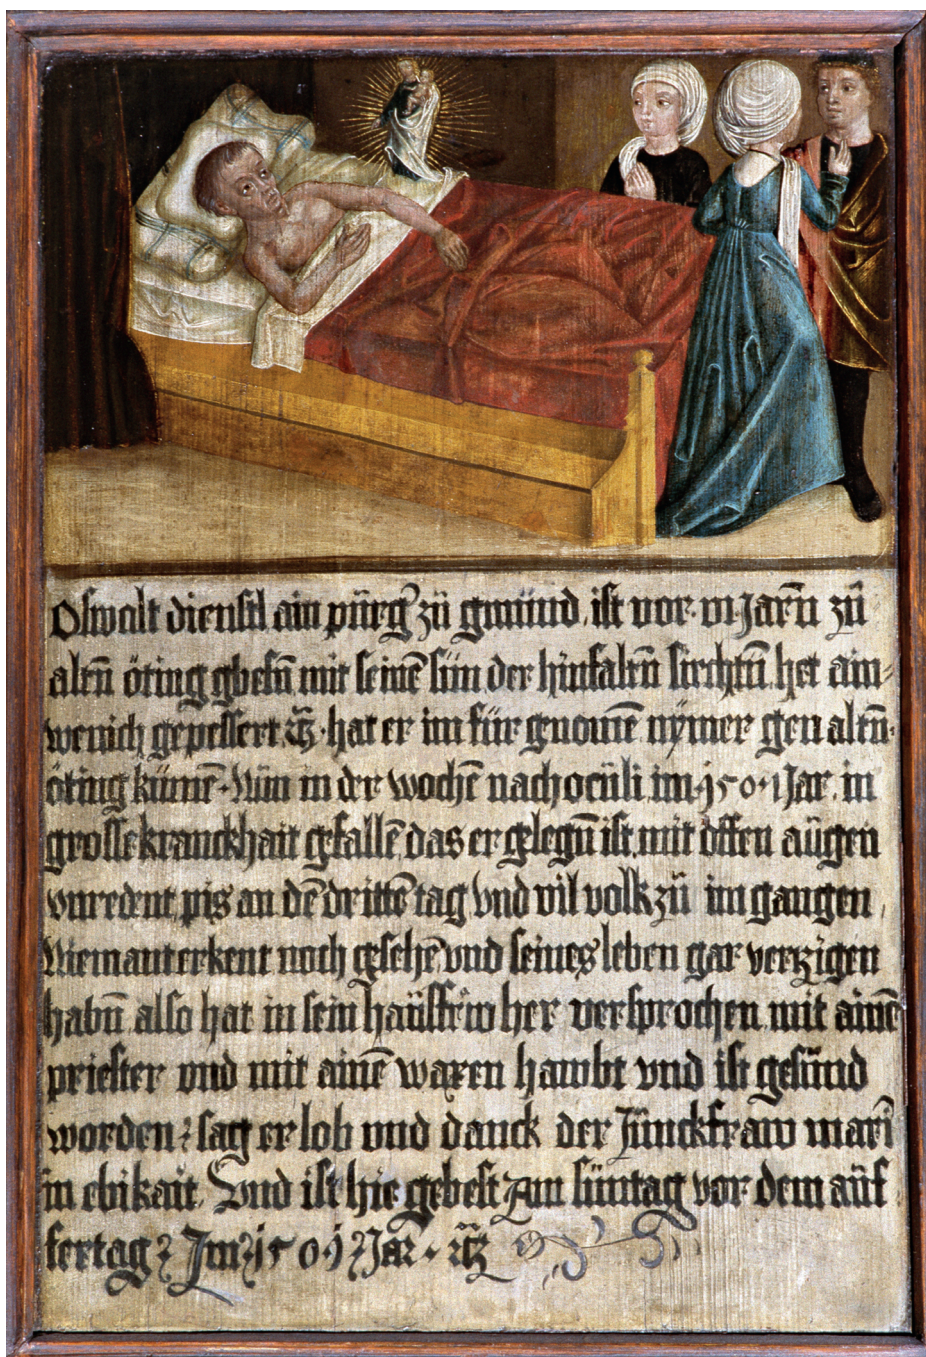 Oswalt dienstl ain pürg' zü gmünd ist vor vi Jarn̄ zü
altn̄ öting gbesn̄ mit seinē sün der hinfaltn̄ sirchtn̄ het ain
wenich gepessert, hat er im für gnomē nÿmer gen altn̄
öting kümē Nün in der wochē nach oculi im 1501 Jar in
grosse kranckhait gefallē das er gelegn̄ ist mit offen augen
vnredent pis an dē drittē tag vnd vil volk zü im gangen
Niemant erkent noch gesehē vnd seines leben gar verzigen
habn̄ also hat in sein haüsfrw her versprochen mit ainē
priester vnd mit ainē waxen hawbt vnd ist gesünd
worden sag er lob vnd danck der Jünckfraw mari
in ebikait Vnd ist hie gebest Am süntag vor dem aüf
fertag Im 1501 Jar